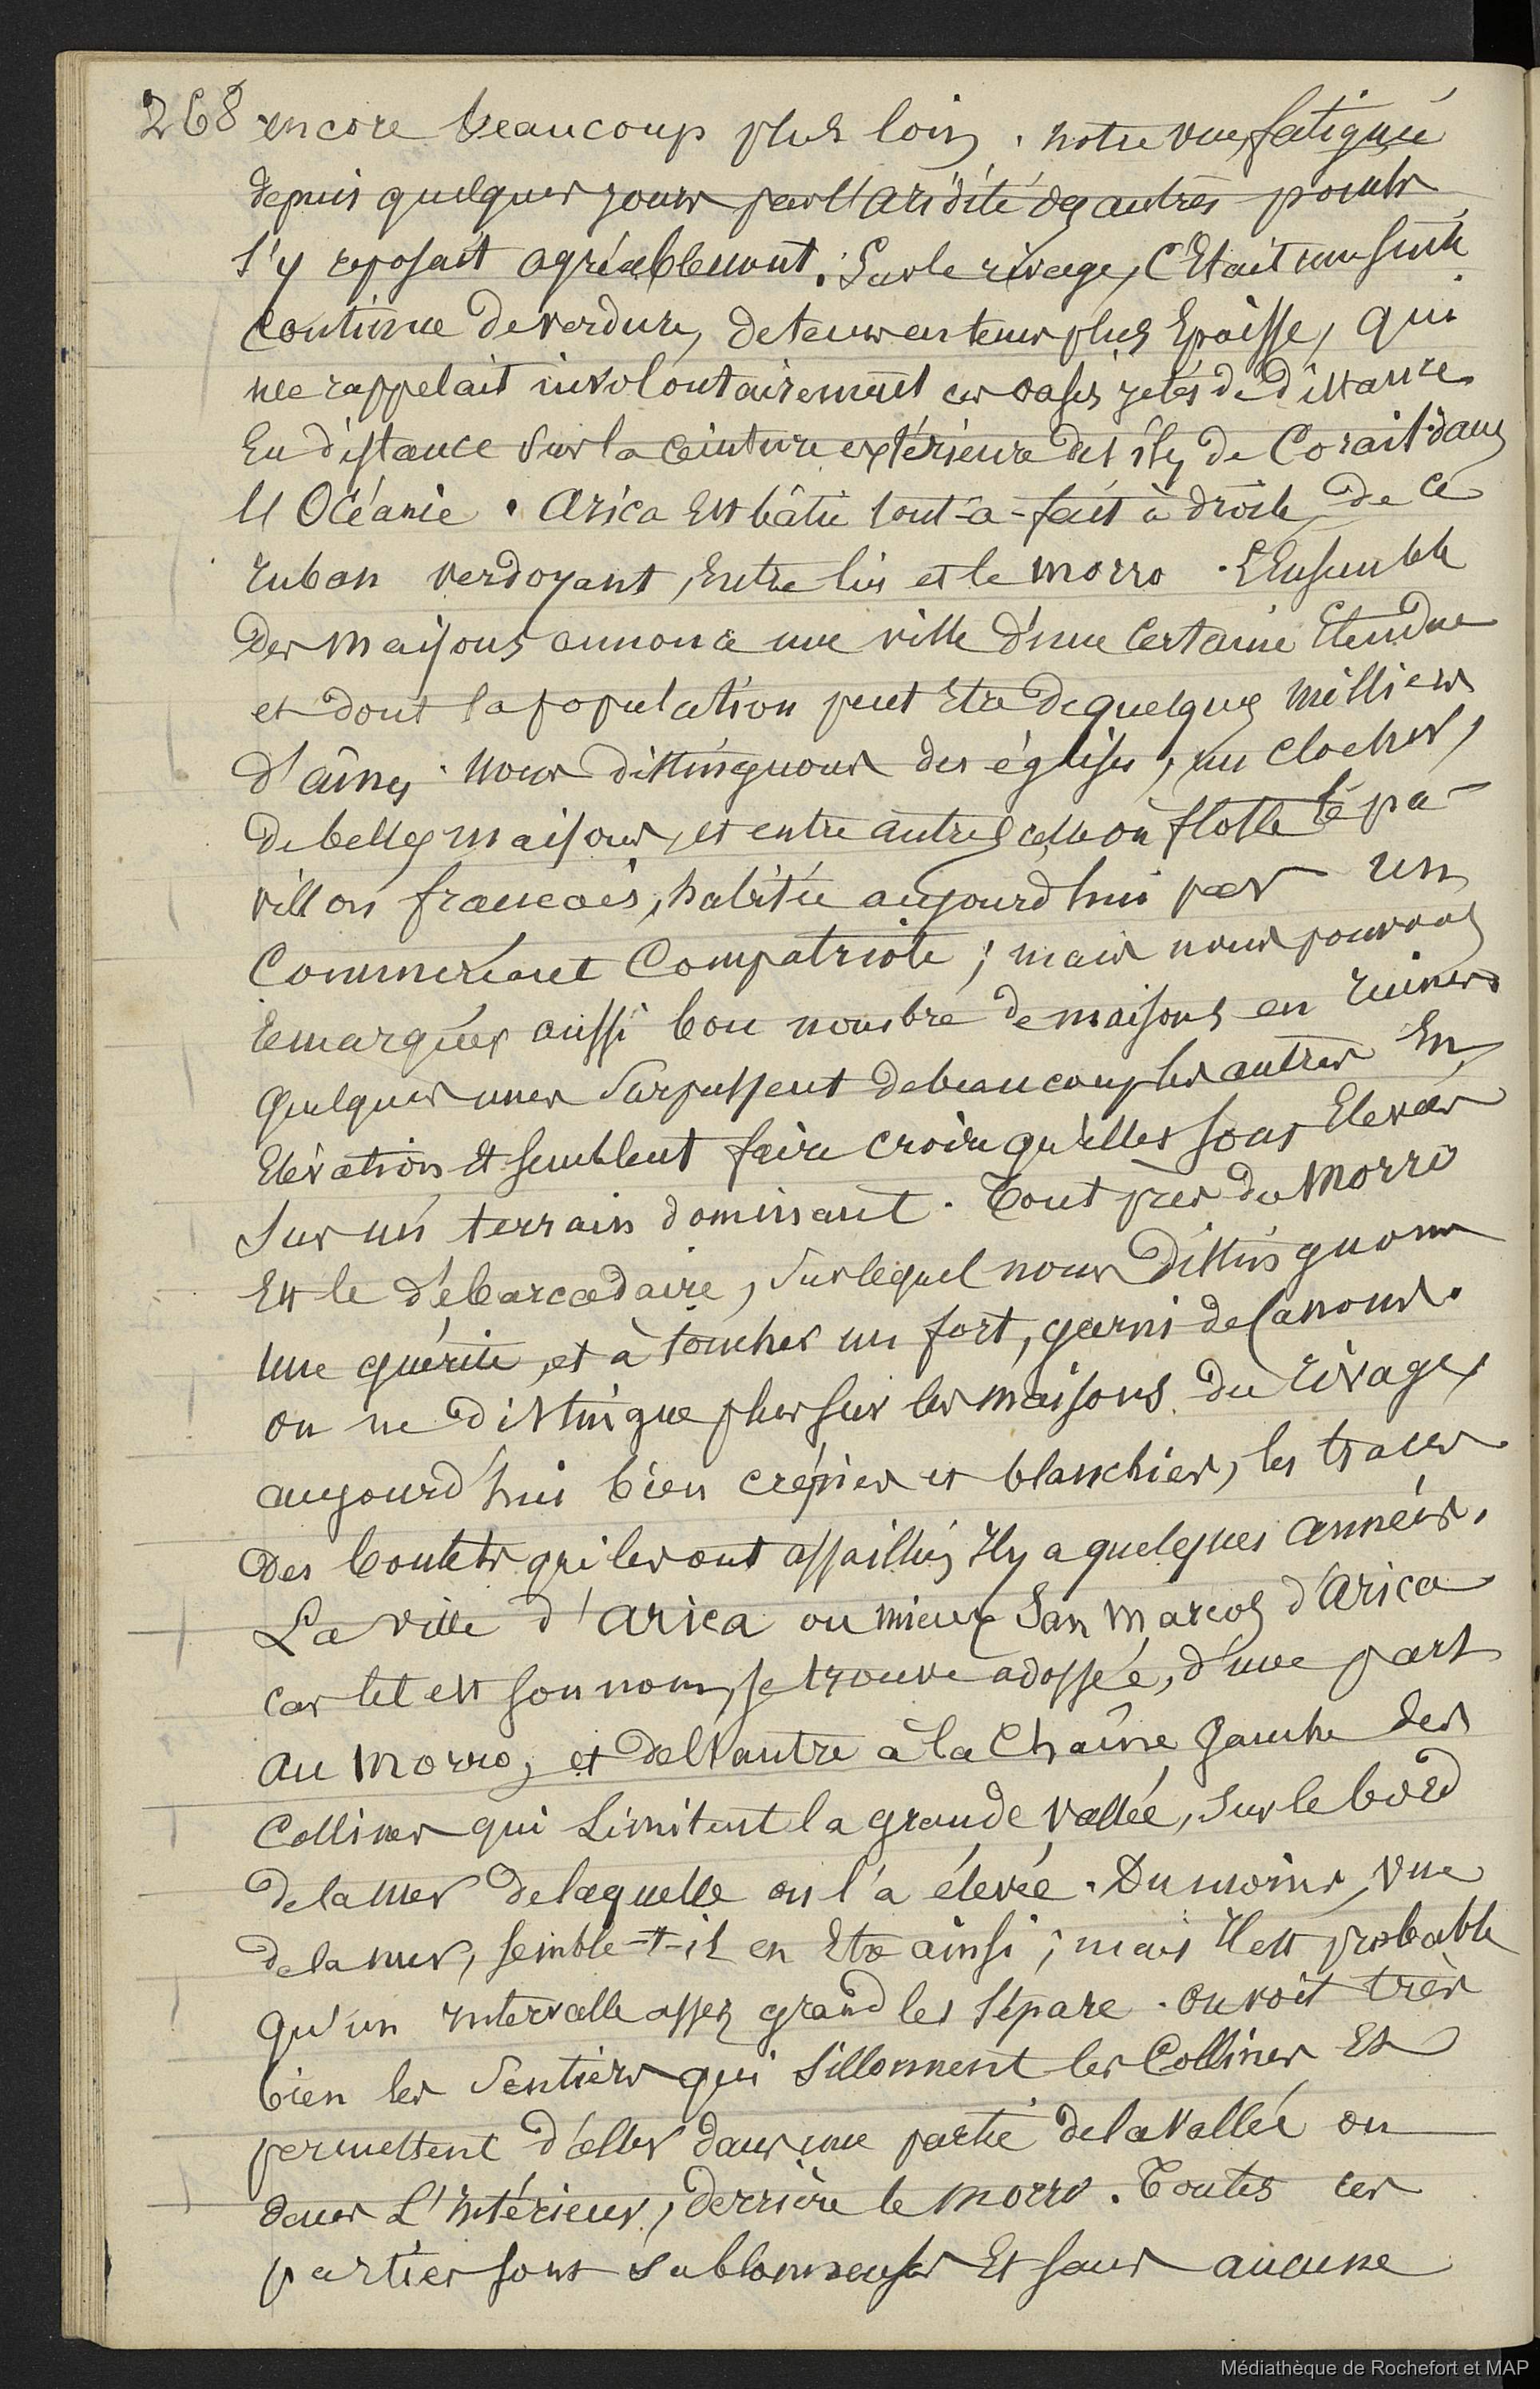 268 encore beaucoup plus loin. notre vue, fatiguée
depuis quelques jours par l'aridité des autres points
s'y reposait agréablement. Sur le rivage, c'Etait une suite
continue de verdure, de tems en tems plus Epaisse, qui
me rappelait involontairement ces oasis jetés de distance
En distance sur la ceinture extérieure des îles de Corail dans
l'Océanie. Arica Est bâtie tout-à-fait à droite de ce
ruban verdoyant, Entre lui et le morro. L'Ensemble
des maisons annonce une ville d'une certaine Etendue
et dont la population peut Etre de quelques milliers
d'âmes. Nous distinguons des églises, un clocher,
de belles maisons, et entre autres celle où flotte le pa-
villon francais, habitée aujourd'hui par un
Commercant Compatriote; mais nous pouvons
remarquer aussi bon nombre de maisons en ruines.
Quelques unes surpassent de beaucoup les autres En
Elévation et semblent faire croire qu'elles sont Elevées
sur un terrain dominant. Tout près du Morro
Est le débarcadaire, sur lequel nous distinguons
une guérite, et à toucher un fort, garni de Canons.
on ne distingue plus sur les maisons du rivage,
aujourd'hui bien crépies et blanchies, les traces
des boulets qui les ont assaillies Il y a quelques années.
La ville d'Arica ou mieux San Marcos d'Arica
car tel est son nom, se trouve adossée, d'une part
au Morro, et de l'autre à la Chaîne gauche des
Collines qui Limitent la grande vallée, sur le bord
de la mer de laquelle on l'a élevée. Du moins, vue
de la mer, semble-t-il en Etre ainsi; mais Il est probable
qu'un Intervalle assez grand les sépare. On voit très
bien les sentiers qui sillonnent les Collines Et
permettent d'aller dans une partie de la vallée ou
dans L'Intérieur, derrière le morro. Toutes ces
parties sont sablonneuses Et sans aucune
Médiathèque de Rochefort et MAP